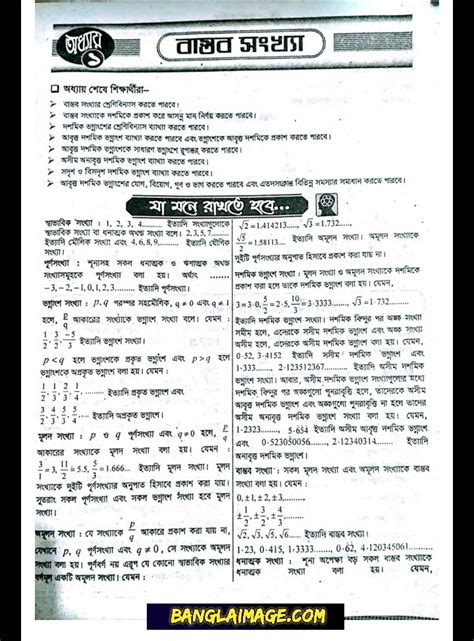 অধ্যায়
১
বাস্তব সংখ্যা
অধ্যায় শেষে শিক্ষার্থীরা–
বাস্তব সংখ্যার শ্রেণিবিন্যাস করতে পারবে।
বাস্তব সংখ্যাকে দশমিকে প্রকাশ করে আসন্ন মান নির্ণয় করতে পারবে।
দশমিক ভগ্নাংশের শ্রেণিবিন্যাস ব্যাখ্যা করতে পারবে।
আবৃত্ত দশমিক ভগ্নাংশ ব্যাখ্যা করতে পারবে এবং ভগ্নাংশকে আবৃত্ত দশমিকে প্রকাশ করতে পারবে।
আবৃত্ত দশমিক ভগ্নাংশকে সাধারণ ভগ্নাংশে রূপান্তর করতে পারবে।
অসীম অনাবৃত্ত দশমিক ভগ্নাংশ ব্যাখ্যা করতে পারবে।
সদৃশ ও বিসদৃশ দশমিক ভগ্নাংশ ব্যাখ্যা করতে পারবে।
আবৃত্ত দশমিক ভগ্নাংশের যোগ, বিয়োগ, গুণ ও ভাগ করতে পারবে এবং এতদসংক্রান্ত বিভিন্ন সমস্যার সমাধান করতে পারবে।
যা মনে রাখতে হবে...
স্বাভাবিক সংখ্যা : 1, 2, 3, 4...... ইত্যাদি সংখ্যাগুলোকে
স্বাভাবিক সংখ্যা বা ধনাত্মক অখণ্ড সংখ্যা বলে। 2,3,5,7......
ইত্যাদি মৌলিক সংখ্যা এবং 4, 6, 8, 9,....... ইত্যাদি যৌগিক
সংখ্যা।
পূর্ণসংখ্যা : শূন্যসহ সকল ধনাত্মক ও ঋণাত্মক অখণ্ড
সংখ্যাসমূহকে পূর্ণসংখ্যা বলা হয়। অর্থাৎ ......
–3, –2, –1, 0, 1, 2, 3....... ইত্যাদি পূর্ণসংখ্যা।
ভগ্নাংশ সংখ্যা : p, q পরস্পর সহমৌলিক, q ≠ 0 এবং q ≠ 1
হলে, p/q আকারের সংখ্যাকে ভগ্নাংশ সংখ্যা বলে। যেমন :
1/2, 3/2, –5/3 ইত্যাদি ভগ্নাংশ সংখ্যা।
p < q হলে ভগ্নাংশকে প্রকৃত ভগ্নাংশ এবং p > q হলে
ভগ্নাংশকে অপ্রকৃত ভগ্নাংশ বলা হয়। যেমন :
1/2, 1/3, 2/3, 1/4 ..... ইত্যাদি প্রকৃত ভগ্নাংশ এবং
3/2, 4/3, 5/3, 5/4 ..... ইত্যাদি অপ্রকৃত ভগ্নাংশ।
মূলদ সংখ্যা : p ও q পূর্ণসংখ্যা এবং q ≠ 0 হলে, p/q
আকারের সংখ্যাকে মূলদ সংখ্যা বলা হয়। যেমন :
3/1 = 3, 11/2 = 5.5, 5/3 = 1.666... ইত্যাদি মূলদ সংখ্যা। মূলদ
সংখ্যাকে দুইটি পূর্ণসংখ্যার অনুপাত হিসাবে প্রকাশ করা যায়।
সুতরাং সকল পূর্ণসংখ্যা এবং সকল ভগ্নাংশ সংখ্যা হবে মূলদ
সংখ্যা।
অমূলদ সংখ্যা : যে সংখ্যাকে p/q আকারে প্রকাশ করা যায় না,
যেখানে p, q পূর্ণসংখ্যা এবং q ≠ 0, সে সংখ্যাকে অমূলদ
সংখ্যা বলা হয়। পূর্ণবর্গ নয় এরূপ যে কোনো স্বাভাবিক সংখ্যার
বর্গমূল একটি অমূলদ সংখ্যা। যেমন :
√2 = 1.414213....., √3 = 1.732.....,
√5/2 = 1.58113.... ইত্যাদি অমূলদ সংখ্যা। অমূলদ সংখ্যাকে
দুইটি পূর্ণসংখ্যার অনুপাত হিসাবে প্রকাশ করা যায় না।
দশমিক ভগ্নাংশ সংখ্যা : মূলদ সংখ্যা ও অমূলদ সংখ্যাকে দশমিকে
প্রকাশ করা হলে তাকে দশমিক ভগ্নাংশ বলা হয়। যেমন,
3 = 3·0, 5/2 = 2·5, 10/3 = 3·3333......, √3 = 1·732.........
ইত্যাদি দশমিক ভগ্নাংশ সংখ্যা। দশমিক বিন্দুর পর অঙ্ক সংখ্যা
সসীম হলে, এদেরকে সসীম দশমিক ভগ্নাংশ এবং অঙ্ক সংখ্যা
অসীম হলে, এদেরকে অসীম দশমিক ভগ্নাংশ বলা হয়। যেমন,
0·52, 3·4152 ইত্যাদি সসীম দশমিক ভগ্নাংশ এবং
1·333......, 2·123512367........ ইত্যাদি অসীম দশমিক
ভগ্নাংশ সংখ্যা। আবার, অসীম দশমিক ভগ্নাংশ সংখ্যাগুলোর মধ্যে
দশমিক বিন্দুর পর অঙ্কগুলো পুনরাবৃত্তি হলে, তাদেরকে অসীম
আবৃত্ত দশমিক ভগ্নাংশ এবং অঙ্কগুলো পুনরাবৃত্তি না হলে তাদের
অসীম অনাবৃত্ত দশমিক ভগ্নাংশ সংখ্যা বলা হয়। যেমন,
1·2323........, 5·654 ইত্যাদি অসীম আবৃত্ত দশমিক ভগ্নাংশ
এবং 0·523050056......., 2·12340314....... ইত্যাদি অসীম
অনাবৃত্ত দশমিক ভগ্নাংশ সংখ্যা।
বাস্তব সংখ্যা : সকল মূলদ সংখ্যা এবং অমূলদ সংখ্যাকে বাস্তব
সংখ্যা বলা হয়। যেমন :
0, ±1, ±2, ±3,.........
±1/2, ±3/2, ±4/3, .........
√2, √3, √5, √6..... ইত্যাদি বাস্তব সংখ্যা।
1·23, 0·415, 1·3333........, 0·62, 4·120345061........
ধনাত্মক সংখ্যা : শূন্য অপেক্ষা বড় সকল বাস্তব সংখ্যাকে
ধনাত্মক সংখ্যা বলা হয়। যেমন,
BANGLAIMAGE.COM